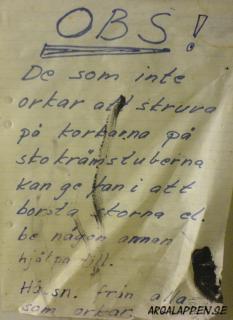 OBS!
De som inte
orkar att skruva
på korkarna på
skokrämstuberna
kan ge fan i att
borsta skorna el.
be någon annan
hjälpa till.
Hä.sn. från alla
som orkar
ARGALAPPEN.SE